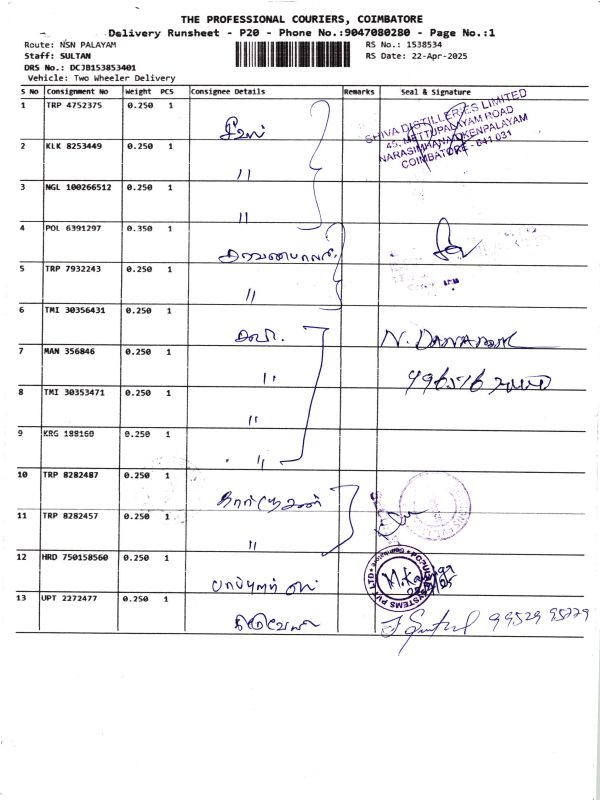 THE PROFESSIONAL COURIERS, COIMBATORE
Delivery Runsheet - P20 - Phone No.:9047080280 - Page No.:1
Route: NSN PALAYAM RS No.: 1538534
Staff: SULTAN RS Date: 22-Apr-2025
DRS No.: DCJB153853401
Vehicle: Two Wheeler Delivery
S No Consignment No Weight PCS Consignee Details Remarks Seal & Signature
1 TRP 4752375 0.250 1
SHIVA DISTILLERIES LIMITED
45, METTUPALAYAM ROAD
NARASIMHANAICKENPALAYAM
COIMBATORE - 641 031
2 KLK 8253449 0.250 1
"
3 NGL 100266512 0.250 1
"
4 POL 6391297 0.350 1
சரவணபாலன்
5 TRP 7932243 0.250 1
"
6 TMI 30356431 0.250 1
N.
7 MAN 356846 0.250 1
"
8 TMI 30353471 0.250 1
"
9 KRG 188160 0.250 1
"
10 TRP 8282487 0.250 1
11 TRP 8282457 0.250 1
"
12 HRD 750158560 0.250 1
SYSTEMS PVT LTD
13 UPT 2272477 0.250 1
99529 95779